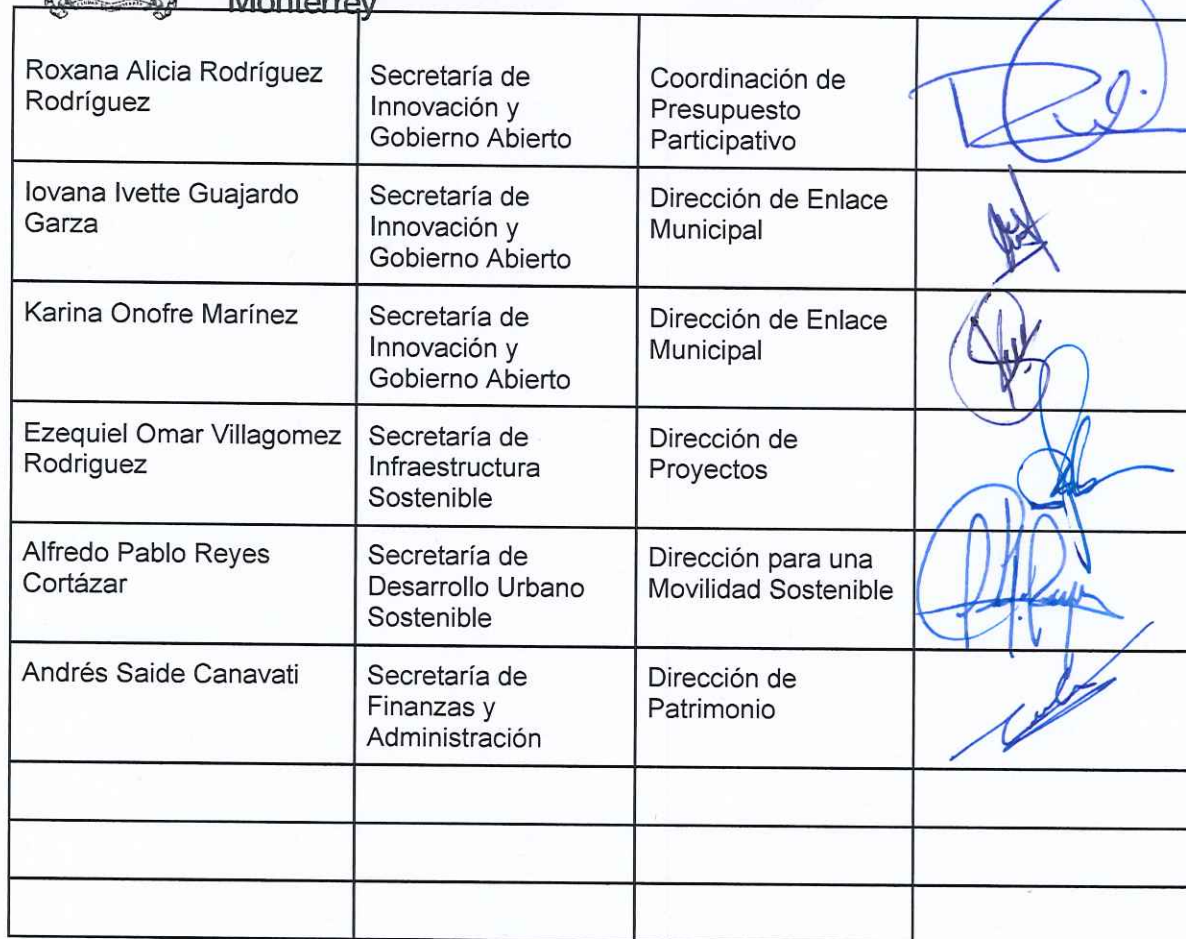 Monterrey
Roxana Alicia Rodríguez
Rodríguez
Secretaría de
Innovación y
Gobierno Abierto
Coordinación de
Presupuesto
Participativo
Iovana Ivette Guajardo
Garza
Secretaría de
Innovación y
Gobierno Abierto
Dirección de Enlace
Municipal
Karina Onofre Marínez
Secretaría de
Innovación y
Gobierno Abierto
Dirección de Enlace
Municipal
Ezequiel Omar Villagomez
Rodriguez
Secretaría de
Infraestructura
Sostenible
Dirección de
Proyectos
Alfredo Pablo Reyes
Cortázar
Secretaría de
Desarrollo Urbano
Sostenible
Dirección para una
Movilidad Sostenible
Andrés Saide Canavati
Secretaría de
Finanzas y
Administración
Dirección de
Patrimonio